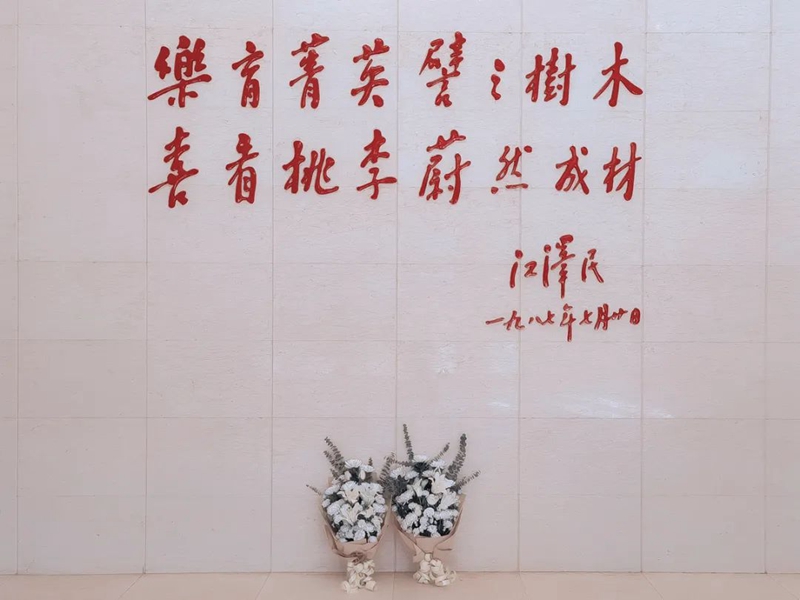 樂育菁英譬之樹木
喜看桃李蔚然成材
江澤民
一九八七年七月廿日